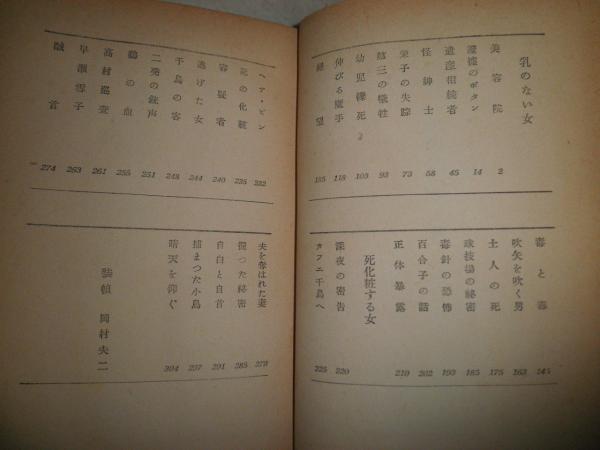 乳のない女
美容院 2
遺産相続者 45
怪紳士 58
栄子の失踪 73
第三の犠牲 93
幼児轢死 103
伸びる魔手 118
絶望 135
毒と毒 145
吹矢を吹く男 163
土人の死 175
球技場の秘密 185
毒針の恐怖 193
百合子の話 202
正体暴露 210
死化粧する女
深夜の密告 220
カフエ千鳥へ 225
ヘア・ピン 232
死の化粧 235
容疑者 240
逃げた女 244
千鳥の客 248
二発の銃声 251
鶴の血 255
高村巡査 261
早瀬雪子 263
戯言 274
夫を奪はれた妻 278
握つた秘密 285
自白と自首 291
捕まつた小鳥 297
晴天を仰ぐ 304
装幀 岡村夫二